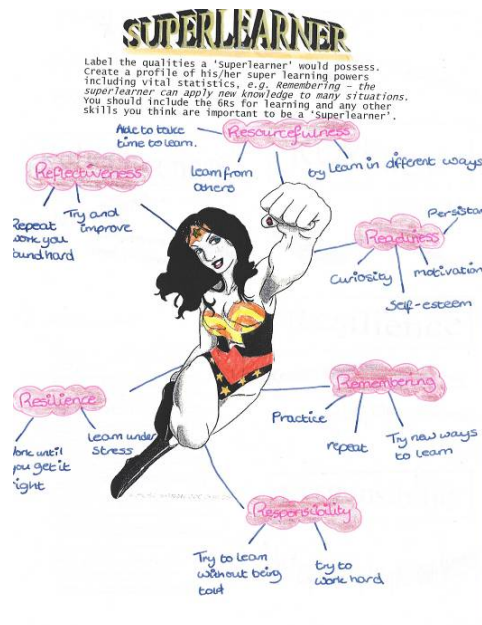 SUPERLEARNER
Label the qualities a 'Superlearner' would possess.
Create a profile of his/her super learning powers
including vital statistics, e.g. Remembering – the
superlearner can apply new knowledge to many situations.
You should include the 6Rs for learning and any other
skills you think are important to be a 'Superlearner'.
Able to take
time to learn.
Resourcefulness
learn from
others
try Learn in different ways
Reflectiveness
Repeat
work you
Try and
improve
Readiness
Curiosity
motivation
Self-esteem
Resilience
you get it
Learn under
stress
Remembering
Practice
repeat
Try new ways
to learn
Responsibility
Try to learn
without being
told
try to
work hard